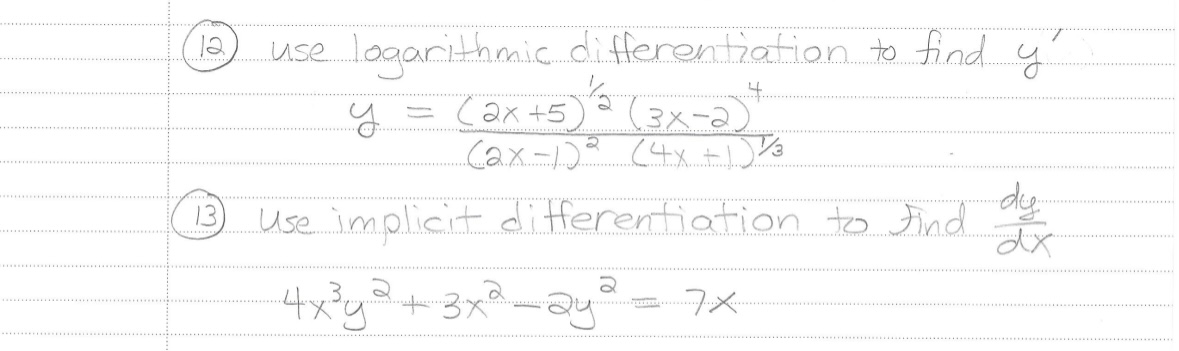 (12) use logarithmic differentiation to find y'
y = (2x+5)^1/2 (3x-2)^4 / (2x-1)^2 (4x+1)^1/3
(13) use implicit differentiation to find dy/dx
4x^3y^2 + 3x^2 - 2y^2 = 7x